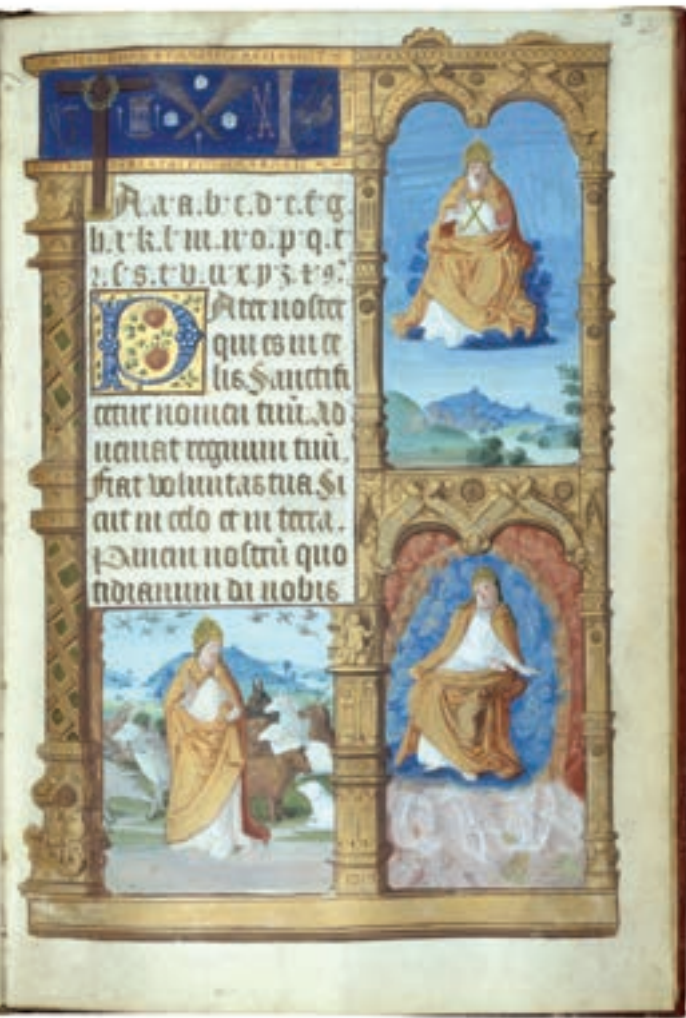 A.a.a.b.c.d.e.f.g.
h.i.k.l.m.n.o.p.q.r
ꝛ.ſ.s.t.v.u.x.y.z.⁊.ꝯ:
Pater noster
qui es in ce
lis. Sanctifi
cetur nomen tuū. Ad
ueniat regnum tuū.
Fiat voluntas tua. Si
cut in celo et in terra.
Panem nostrū quo
tidianum da nobis